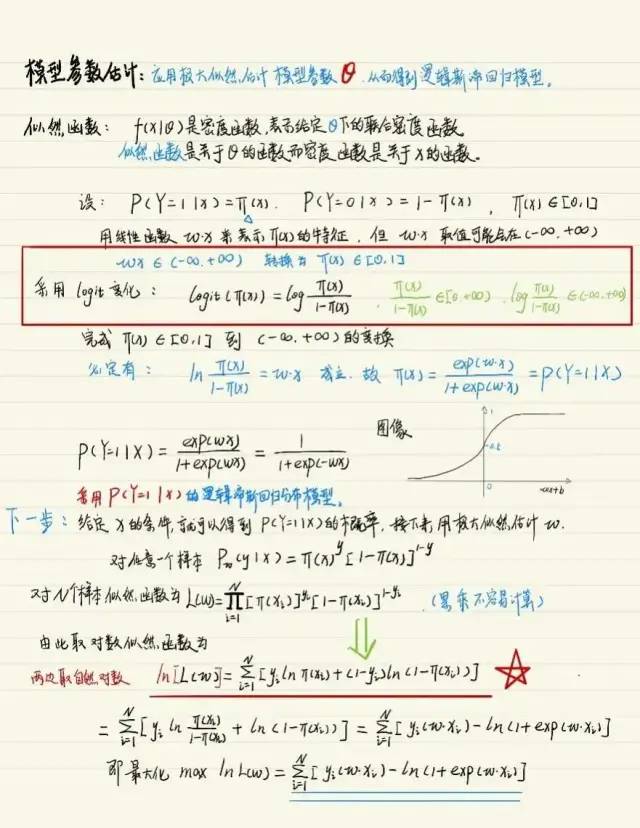 模型参数估计：应用极大似然估计模型参数θ，从而得到逻辑斯谛回归模型。
似然函数： f(x|θ)是密度函数，表示给定θ下的联合密度函数
似然函数是关于θ的函数而密度函数是关于x的函数。
设： P(Y=1|x)=π(x). P(Y=0|x)=1-π(x) , π(x)∈[0,1]
用线性函数 w·x 来表示π(x)的特征，但 w·x 取值可能会在(-∞,+∞)
wx∈(-∞,+∞) 转换为 π(x)∈[0,1]
采用 logit 变化： logit(π(x))=log π(x)/(1-π(x)) , π(x)/(1-π(x)) ∈[0,+∞) , log π(x)/(1-π(x)) ∈(-∞,+∞)
完成 π(x)∈[0,1] 到 (-∞,+∞)的变换
必定有： ln π(x)/(1-π(x)) = w·x 成立. 故 π(x)= exp(w·x)/(1+exp(w·x)) = P(Y=1|X)
P(Y=1|X)= exp(wx)/(1+exp(wx)) = 1/(1+exp(-wx))
图像
1
0.5
0
wx+b
采用P(Y=1|x)的逻辑斯谛回归分布模型。
下一步：给定 x 的条件，就可以得到 P(Y=1|x)的概率，接下来用极大似然估计 w.
对任意一个样本 (y|x)=π(x)^y[1-π(x)]^1-y
对N个样本似然函数为 L(w)=∏_{i=1}^{N}[π(xi)]^yi[1-π(xi)]^1-yi .(累乘不容易计算)
由此取对数似然函数为
两边取自然对数 ln[L(w)]=∑_{i=1}^{N}[yi ln π(xi)+(1-yi)ln(1-π(xi))]
=∑_{i=1}^{N}[yi ln π(xi)/(1-π(xi)) + ln(1-π(xi))]=∑_{i=1}^{N}[yi(w·xi)-ln(1+exp(w·xi)]
即最大化 max lnL(w)=∑_{i=1}^{N}[yi(w·xi)-ln(1+exp(w·xi)]